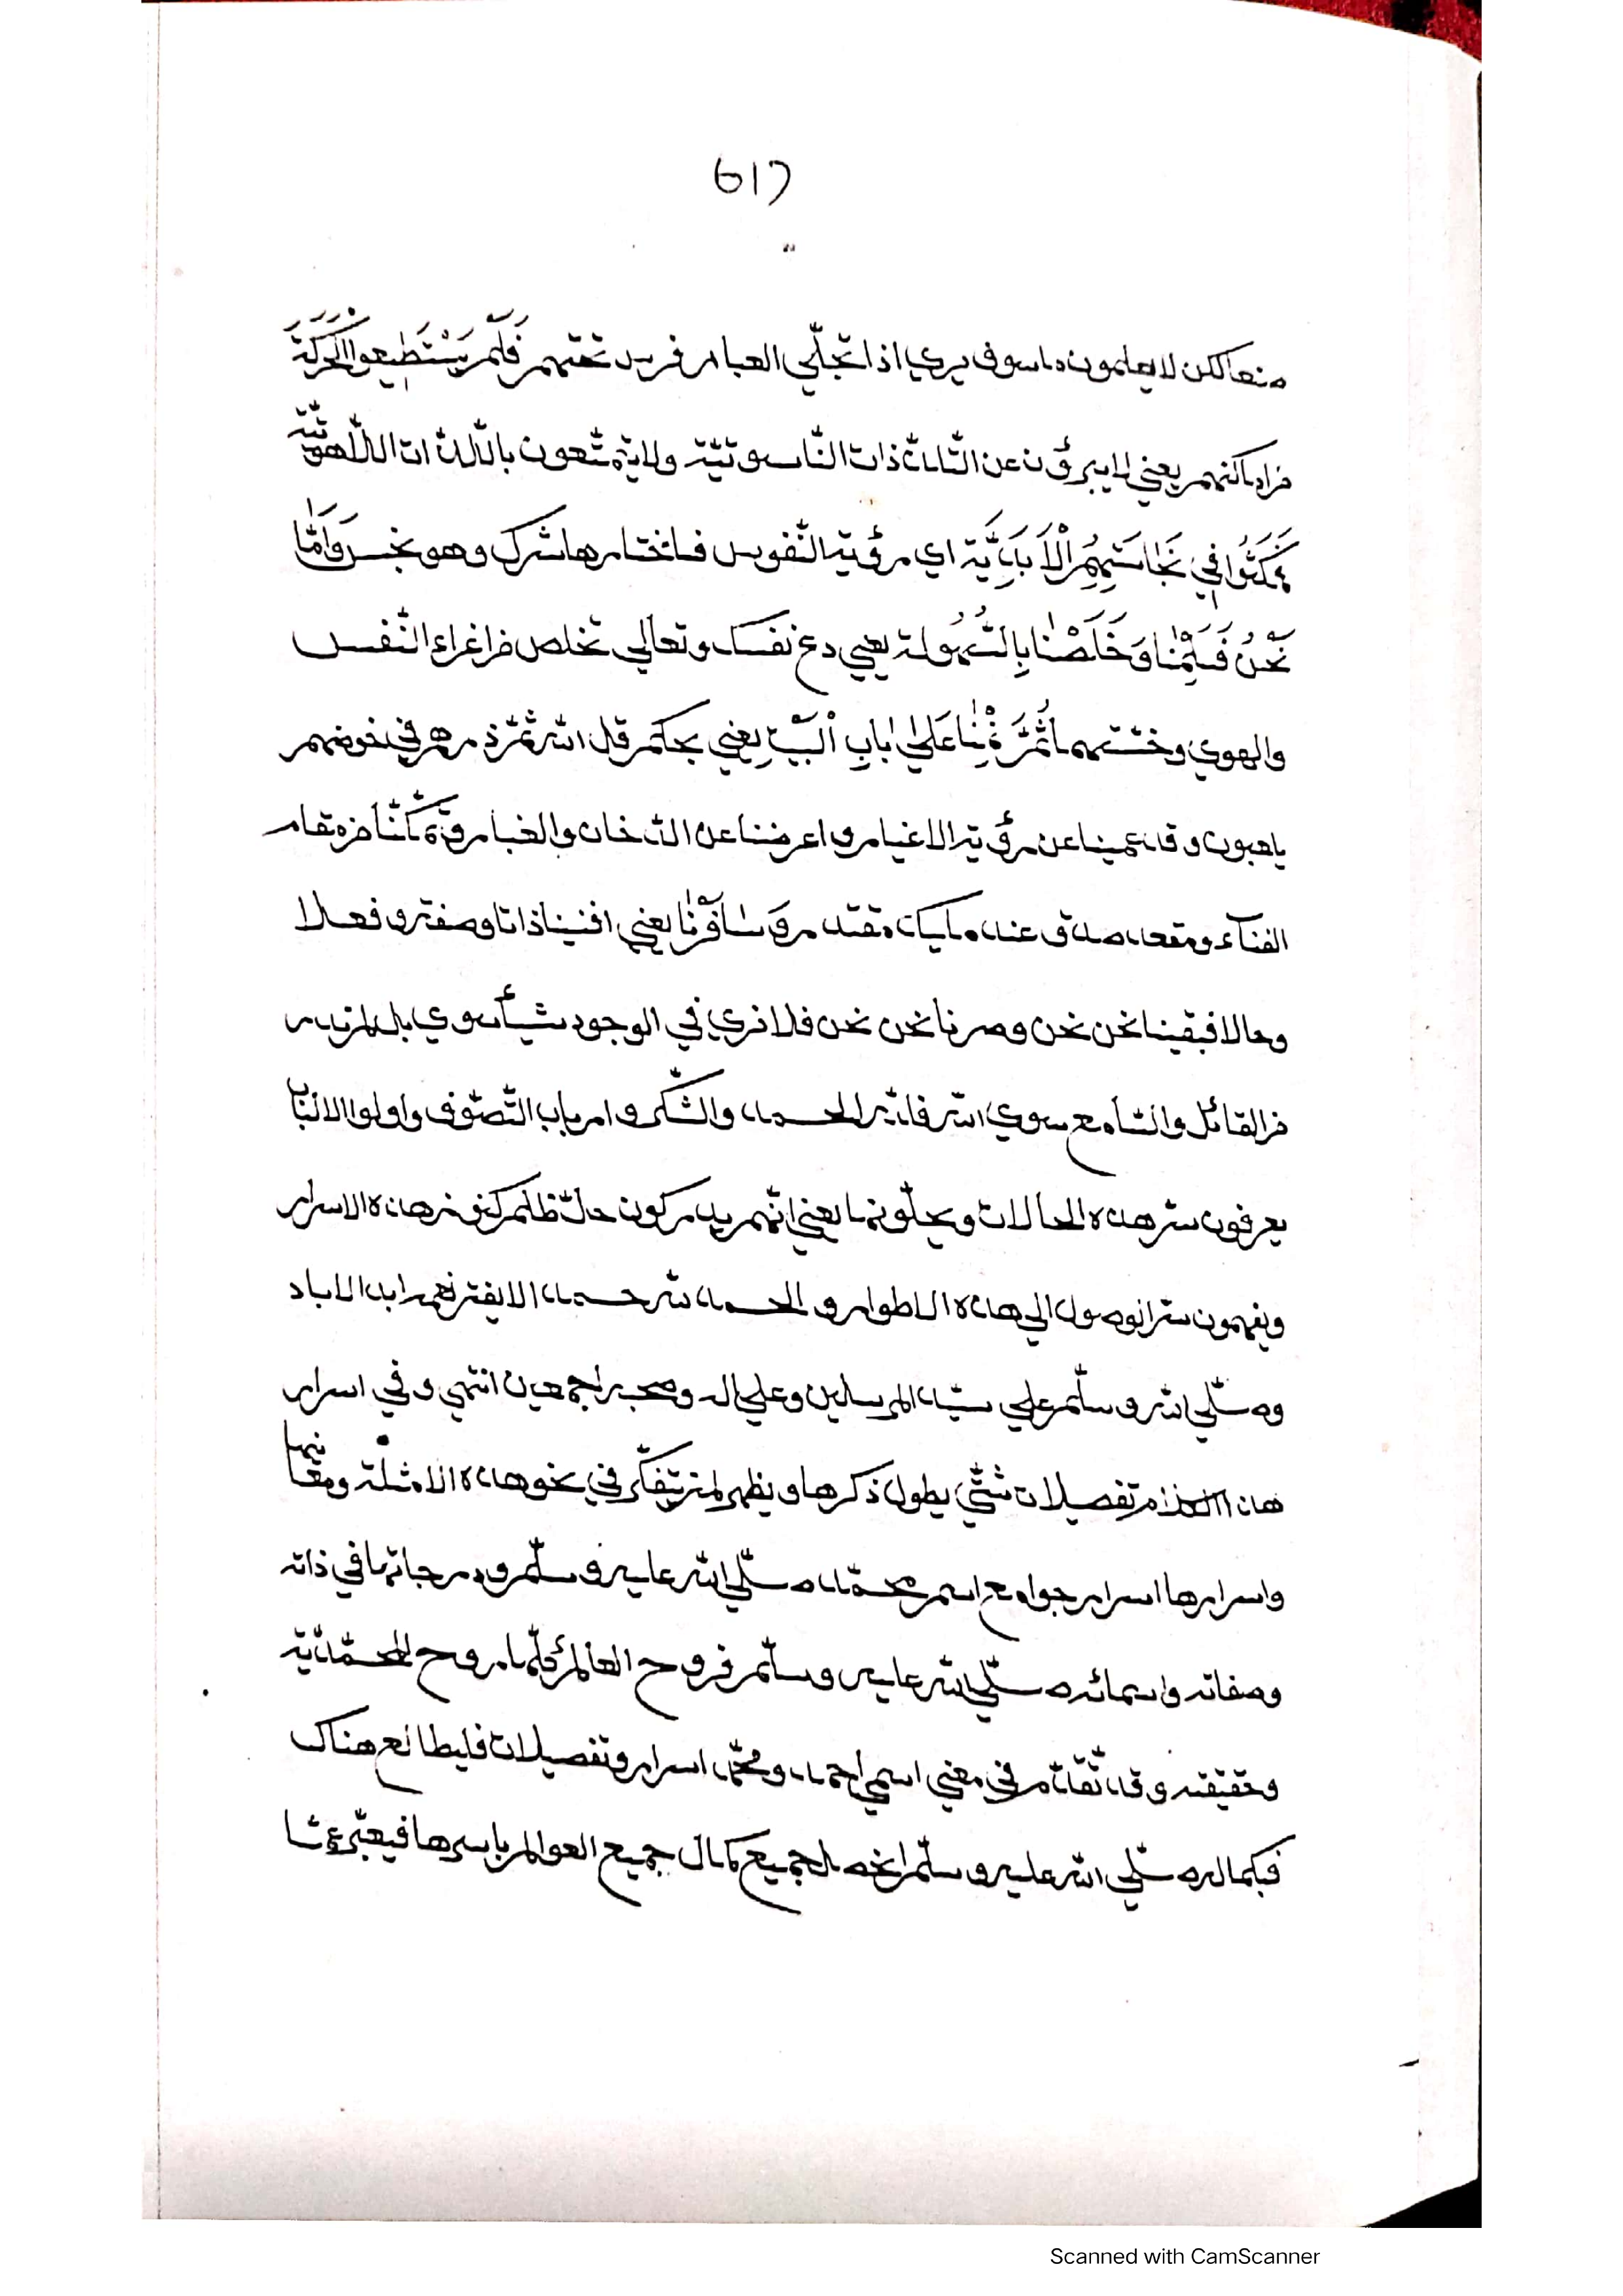 617
منعا لكن لا يعلمون ما سوف يري اذا تجلّي الغبار فرس تحتهم فَلَمْ يَسْتَطِيعوا الْحَرَكَةَ
من اماكنهم يعني لا يبرؤن عن التلذّذات النّاسوتيّة ولا يتمتّعون بالتّلذّذات اللّاهوتيّة
فَمَكَثُوا فِي نَجَاسَتِهِمُ الْاَبَدِيَّة اي رؤية النّفوس فاختارها شرك وهو نجس وَاَمَّا
نَحْنُ فَسَلِمْنَا وَخَلَصْنَا بِالسُّهُولة يعني دع نفسك وتعالي تخلص من اغراء النّفس
والهوي وخسّتهما ثُمَّ نِمْنَا عَلَىٰ بَابِ الْبَيْتِ يعني بحكم قل الله ثمّ ذرهم في خوضهم
يلعبون وقد عمينا عن رؤية الاغيار واعرضنا عن الدّخان والغبار وتمكّنّا من مقام
الفناء ومقعد صدق عند مليك مقتدر وَسَافَرْنَا يعني افنينا ذاتا وصفة وفعلا
وحالا فبقينا نحن نحن وصرنا نحن نحن فلا نري في الوجود شيأ سوي بل لم ندر
من القائل والسّامع سوي الله فلله الحمد والشّكر وارباب التّصوّف واولوا الالباب
يعرفون سرّ هذه الحالات ويحلّونها يعني انّهم يدركون حلّ طلسم كنوز هذه الاسرار
ويفهمون سرّ الوصول الي هذه الاطوار والحمد لله حمدا لا يفتر نعم ابد الاباد
وصلّي الله وسلّم علي سيّد المرسلين وعلي اله وصحبه اجمعين انتهي وفي اسرار
هذا الكلام تفصيلات شتّي يطول ذكرها ويظهر لمن يتفكّر في نحو هذه الامثلة ومعانيها
واسرارها اسرار جوامع اسم محمّد صلّي الله عليه وسلّم ودرجاتها في ذاته
وصفاته واسمائه صلّي الله عليه وسلّم فروح العالم كلّها روح المحمّديّة
وحقيقته وقد تقدّم في معني اسمي احمد ومحمّد اسرار وتفصيلات فليطالع هناك
فبكماله صلّي الله عليه وسلّم انحصل جميع كمال جميع العوالم باسرها فيعبّر
Scanned with CamScanner